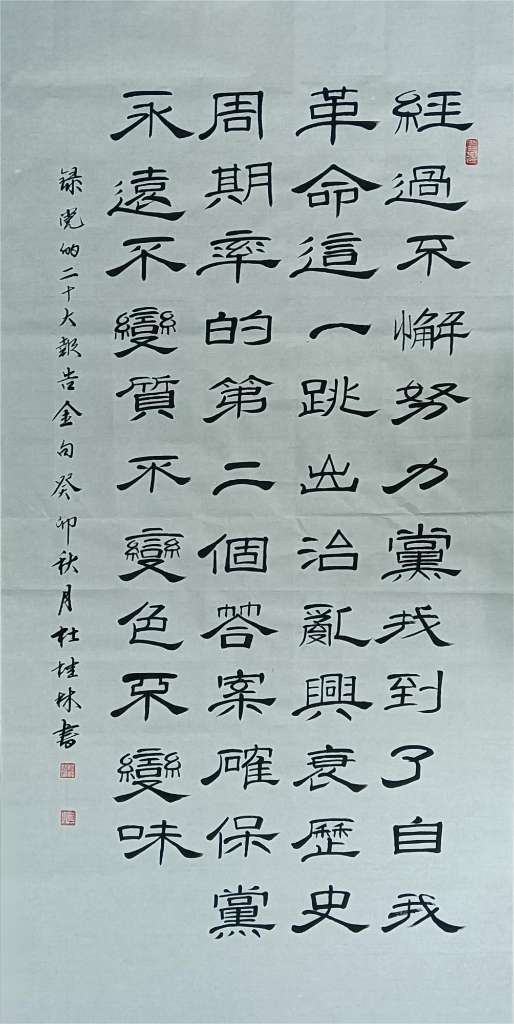 經過不懈努力黨找到了自我
革命這一跳出治亂興衰歷史
周期率的第二個答案確保黨
永遠不變質不變色不變味
録党的二十大報告金句癸卯秋月杜桂林書